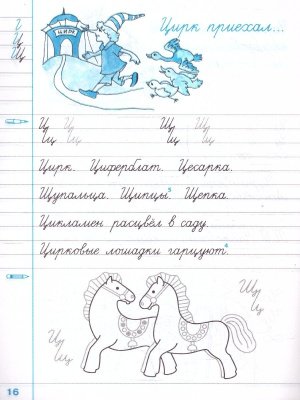 Цирк приехал...
ЦИРК
Ц Ц Щ Щ
Ц Ц Щ Щ
Цирк. Циферблат. Цесарка.
Щупальца. Щипцы⁵. Щепка.
Цикламен расцвёл в саду.
Цирковые лошадки гарцуют⁶.
Щ
Щ
Ц
Ц
16